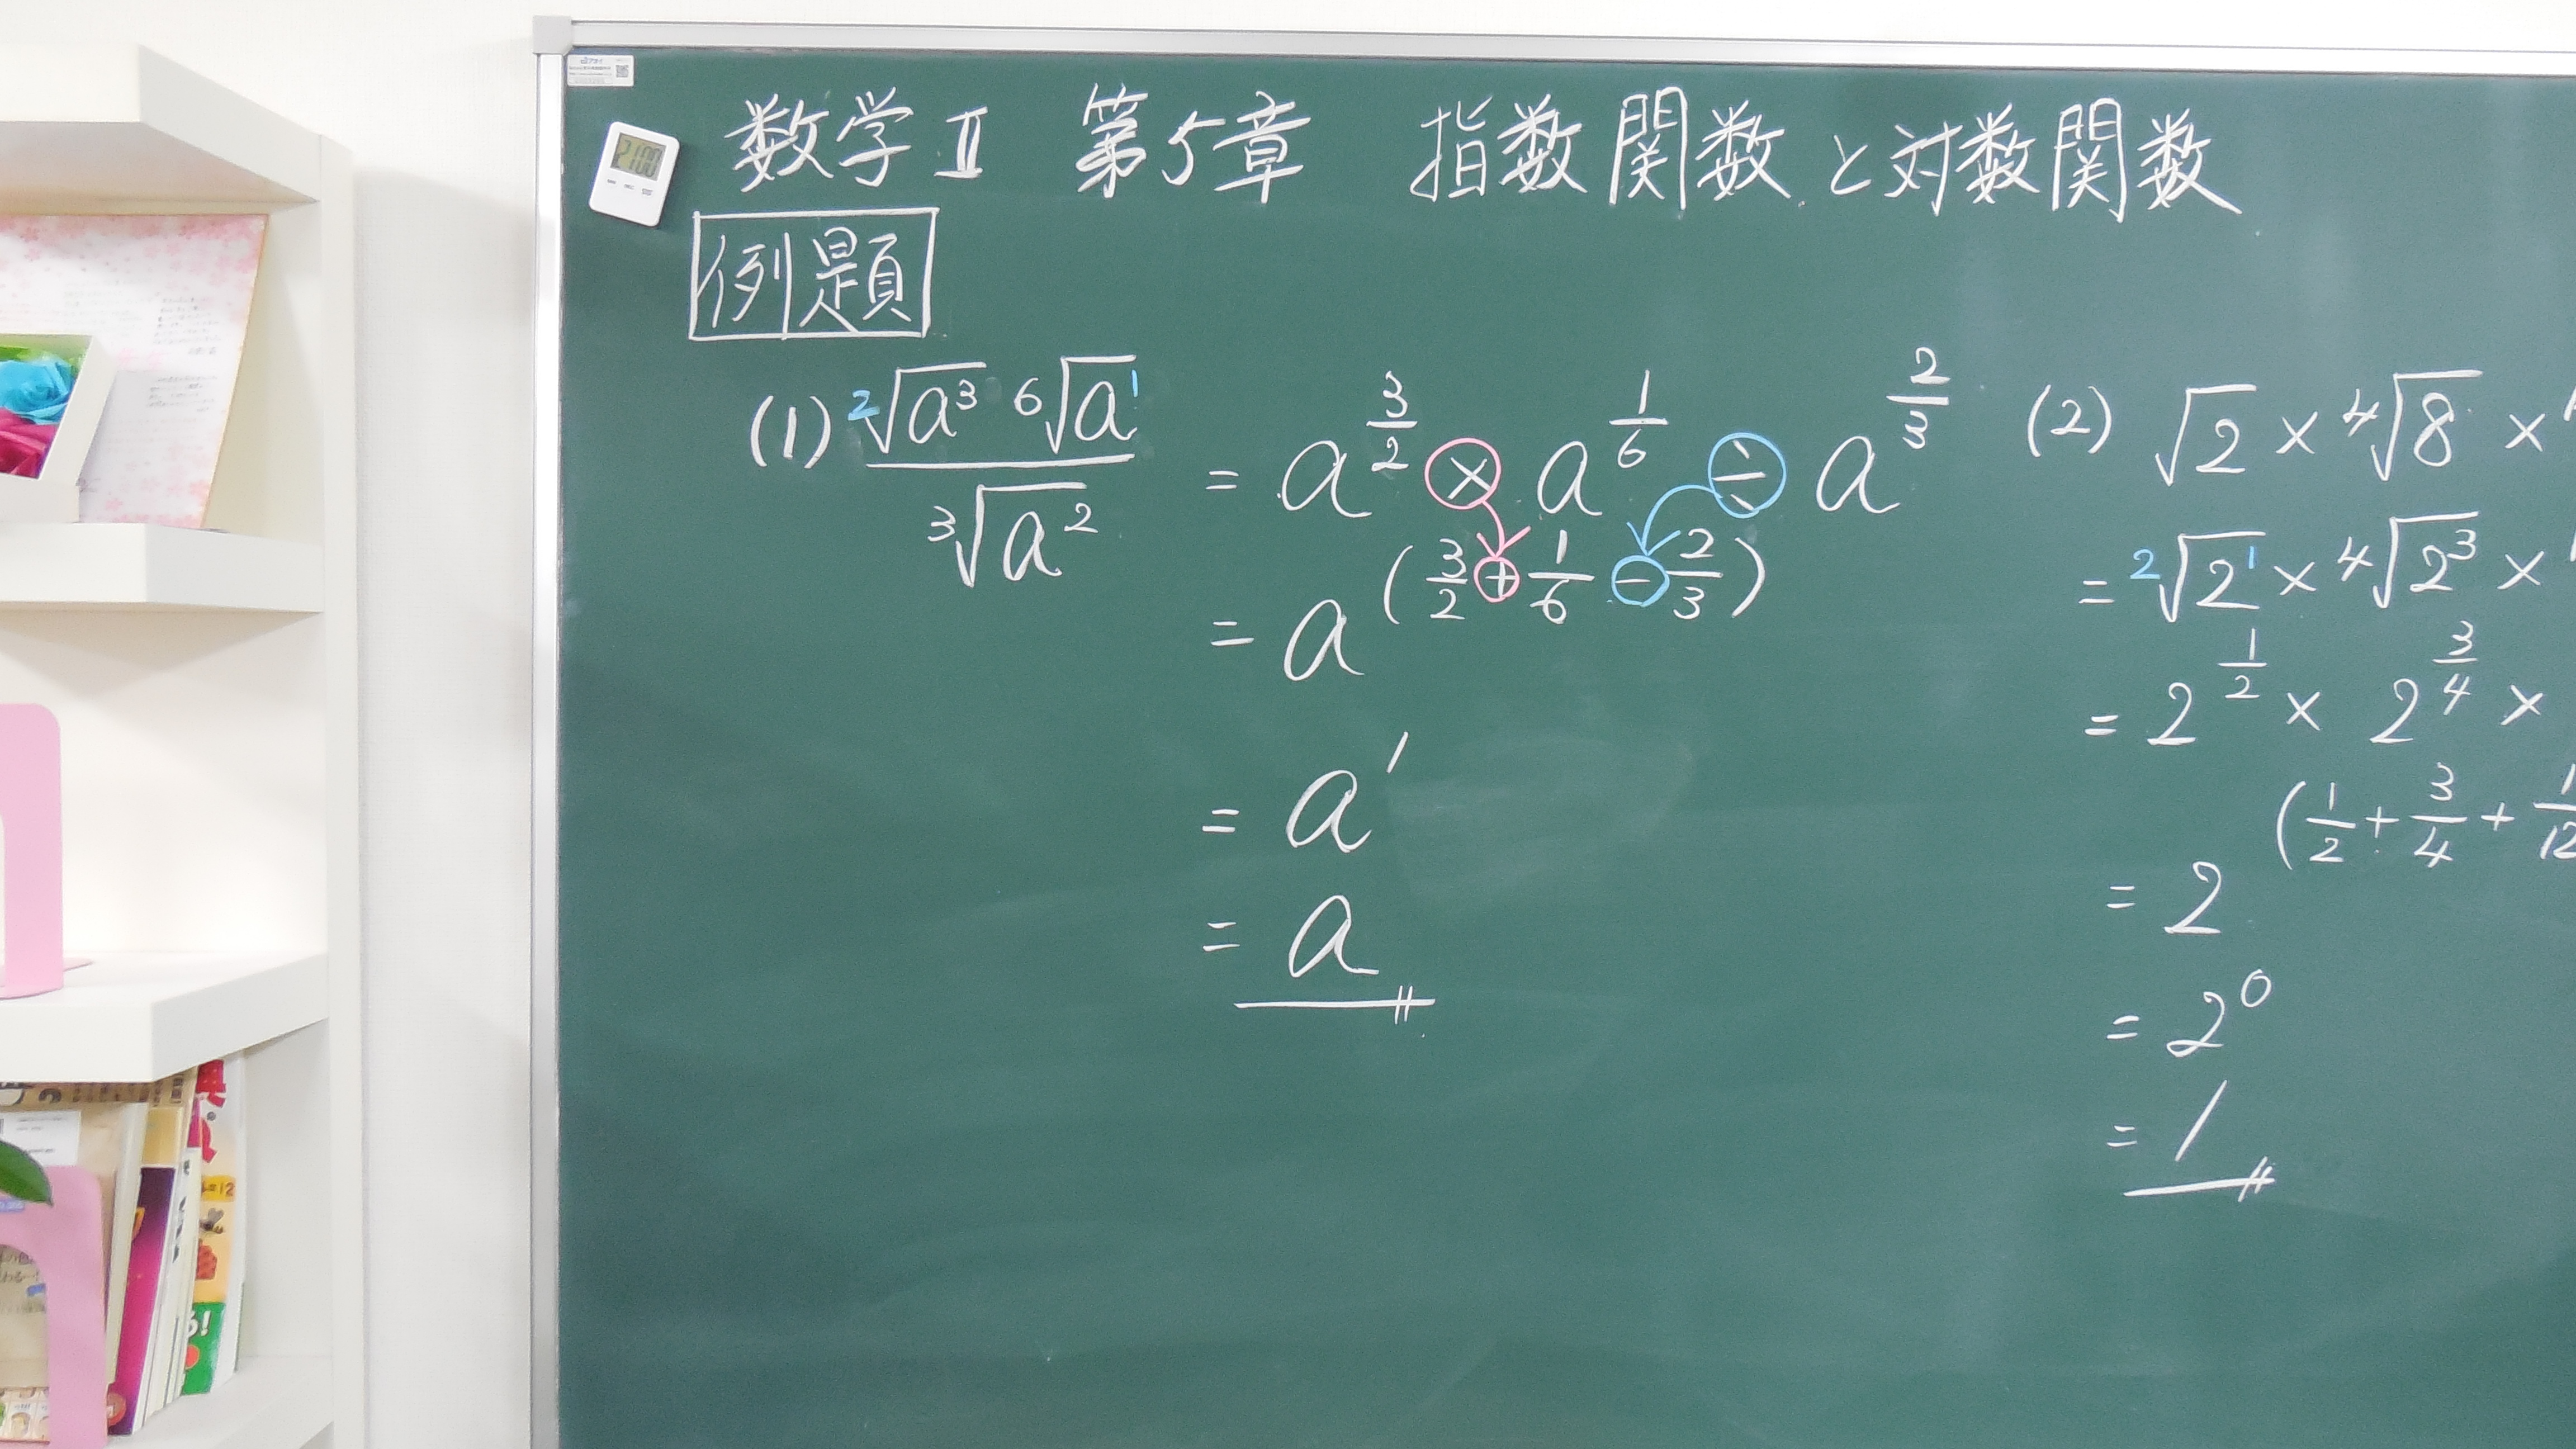 数学Ⅱ 第5章 指数関数と対数関数
例題
(1) \frac{\sqrt[2]{a^3} \sqrt[6]{a^1}}{\sqrt[3]{a^2}} = a^{\frac{3}{2}} × a^{\frac{1}{6}} ÷ a^{\frac{2}{3}}
= a^{(\frac{3}{2} + \frac{1}{6} - \frac{2}{3})}
= a^1
= a
(2) \sqrt{2} × \sqrt[4]{8} ×
= \sqrt[2]{2^1} × \sqrt[4]{2^3} ×
= 2^{\frac{1}{2}} × 2^{\frac{3}{4}} ×
= 2^{(\frac{1}{2} + \frac{3}{4} + \frac{1}{12}}
= 2^0
= 1
21:00